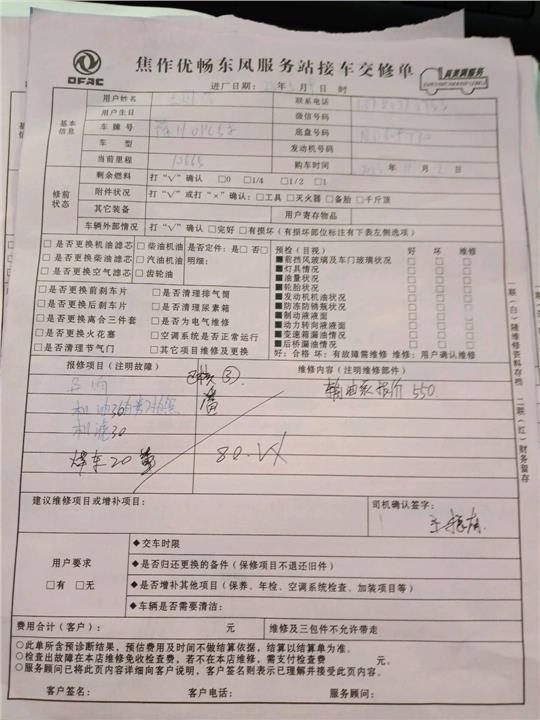 DFAC
焦作优畅东风服务站接车交修单
真英雄服务
进厂日期： 年 月 日 时
基本信息
用户姓名
联系电话
用户生日
微信号码
车牌号
底盘号码
车型
发动机号码
当前里程
购车时间 年 月 日
修前状态
剩余燃料 打“√”确认 □0 □1/4 □1/2 □1
附件状况 打“√”或打“×”确认：□工具 □灭火器 □备胎 □千斤顶
其它装备 用户寄存物品
车辆外部情况 打“√”确认 □完好 □有损坏（有损坏部位标注有下表左侧选项）
□是否更换机油滤芯 □柴油机油 是否定件：是□ 否□
□是否更换柴油滤芯 □汽油机油 明细：
□是否更换空气滤芯 □齿轮油
□是否更换前刹车片 □是否清理排气筒
□是否更换后刹车片 □是否清理尿素箱
□是否更换离合三件套 □是否为电气维修
□是否更换火花塞 □空调系统是否正常运行
□是否清理节气门 □其它项目维修及更换
预检（目视） 好 坏 维修
■前挡风玻璃及车门玻璃状况 □ □ □
■灯具情况 □ □ □
■油量状况 □ □ □
■轮胎状况 □ □ □
■发动机机油状况 □ □ □
■防冻防锈瓶状况 □ □ □
■制动液液面 □ □ □
■动力转向液液面 □ □ □
■变速箱漏油情况 □ □ □
■后桥漏油情况 □ □ □
好：合格 坏：有故障需维修 维修：用户确认维修
报修项目（注明故障） 维修内容（注明维修部件）
机油30
机滤30
焊车20
80.
输油泵报价 550.
一联（白）随维修资料存档 二联（红）财务留存
建议维修项目或增补项目：
司机确认签字：
用户要求
□有 □无
◆交车时限
◆是否归还更换的备件（保修项目不退还旧件）
◆是否增补其他项目（保养、年检、空调系统检查、加装项目等）
◆车辆是否需要清洁：
费用合计（客户）： 元 维修及三包件不允许带走
○此单所含预诊断结果，预估费用及时间不做结算依据，结算以结算单为准。
○检查出故障在本店维修免收检查费，若不在本店维修，需支付检查费 元。
○服务顾问已将此页内容详细向客户说明，客户签名则表示已理解并接受此页内容。
客户签名： 客户电话： 服务顾问：